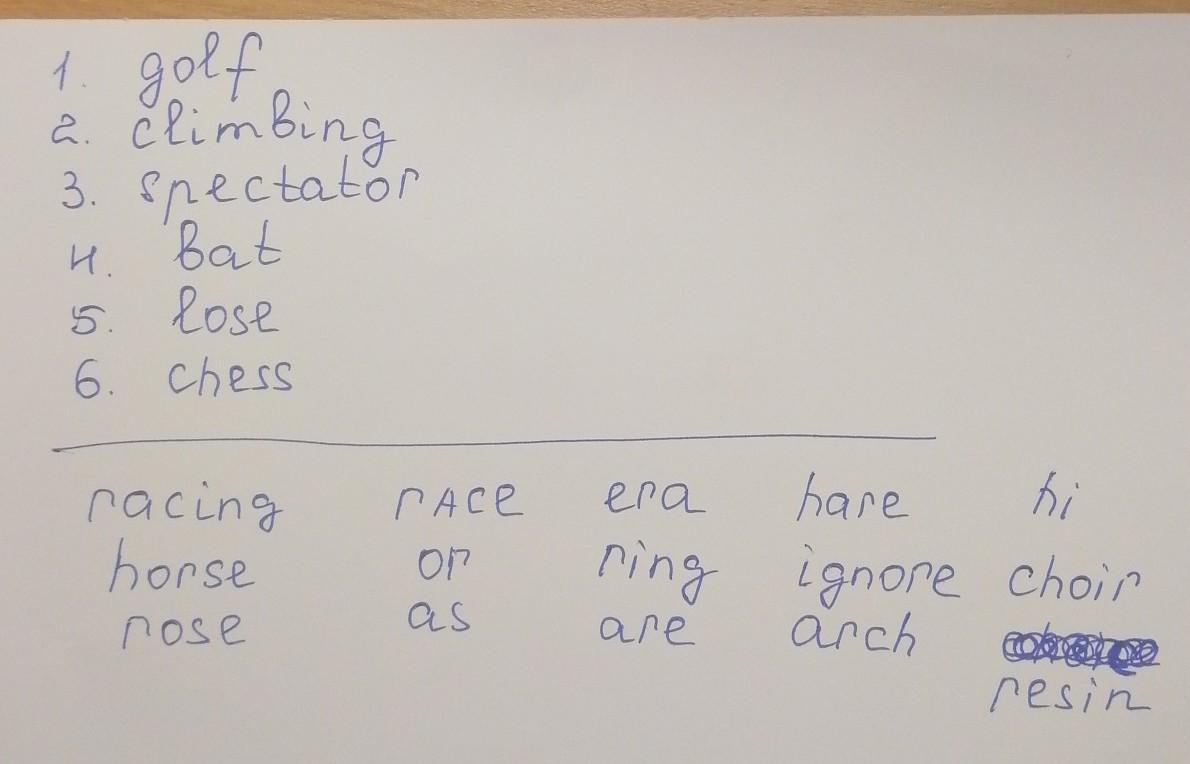 1. golf
2. climbing
3. spectator
4. bat
5. lose
6. chess
racing rACE era hare hi
horse or ring ignore choir
rose as are arch
resin